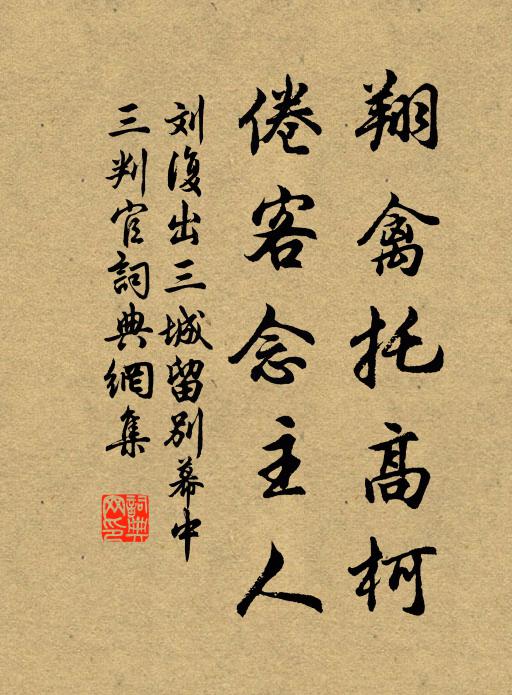 翔禽托高柯
倦客念主人
刘復出三城留别幕中
三判官詞典網集
詞典網印